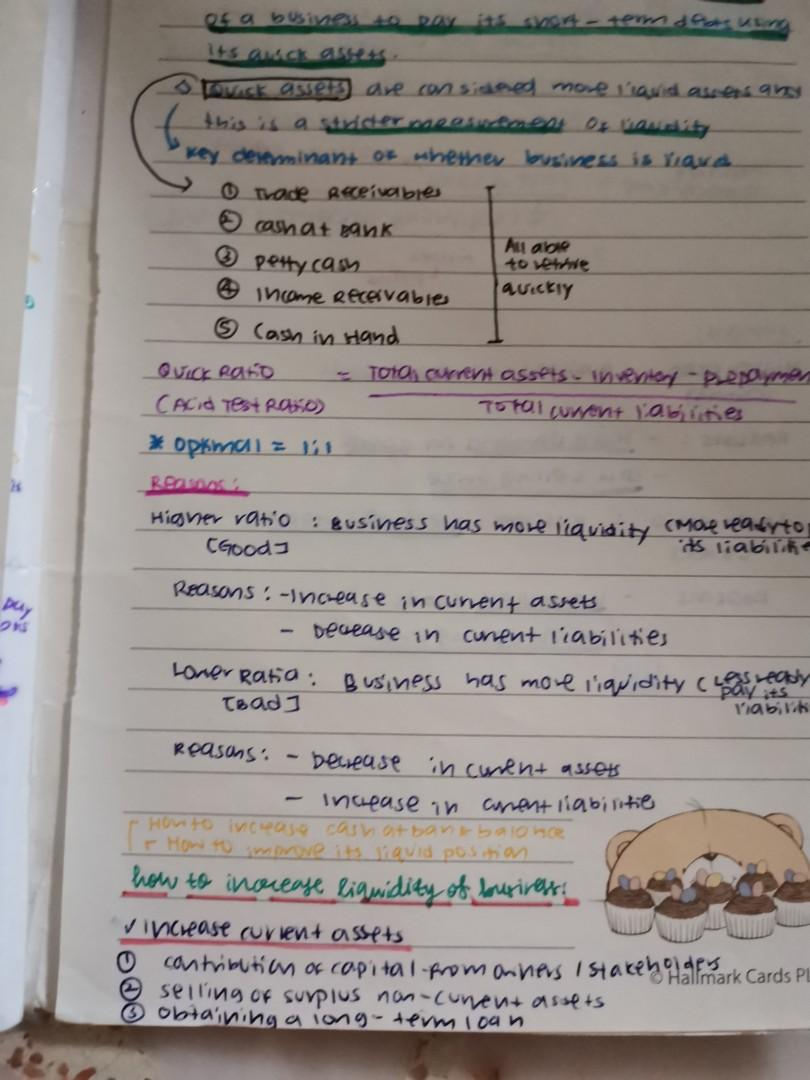 of a business to pay its short-term debts using
its quick assets.
Quick assets are considered more liquid assets and
this is a stricter measurement of liquidity
key determinant of whether business is liquid
① Trade Receivables
② cash at Bank
③ petty cash
④ Income Receivables
⑤ Cash in Hand
All able
to retrive
quickly
Quick Ratio = Total current assets - inventory - prepaymen
(Acid Test Ratio) Total current liabilities
* Optimall = 1:1
Reasons:
Higher ratio : Business has more liquidity (More ready to
[Good] its liabilitie
Reasons : - Increase in current assets
- Decrease in current liabilities
Lower Ratio : Business has more liquidity (Less ready
[Bad] pay its
liabiliti
Reasons : - Decrease in current assets
- Increase in current liabilities
How to increase cash at bank balance
How to improve its liquid position
how to increase liquidity of business:
✓ increase current assets
① contribution of capital from owners / stakeholders
② selling of surplus non-current assets
③ obtaining a long-term loan
© Hallmark Cards PL
pay
ors